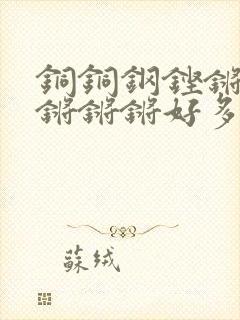 銅銅鋼鏗鏘
鏘鏘鏘好多
蘇絨